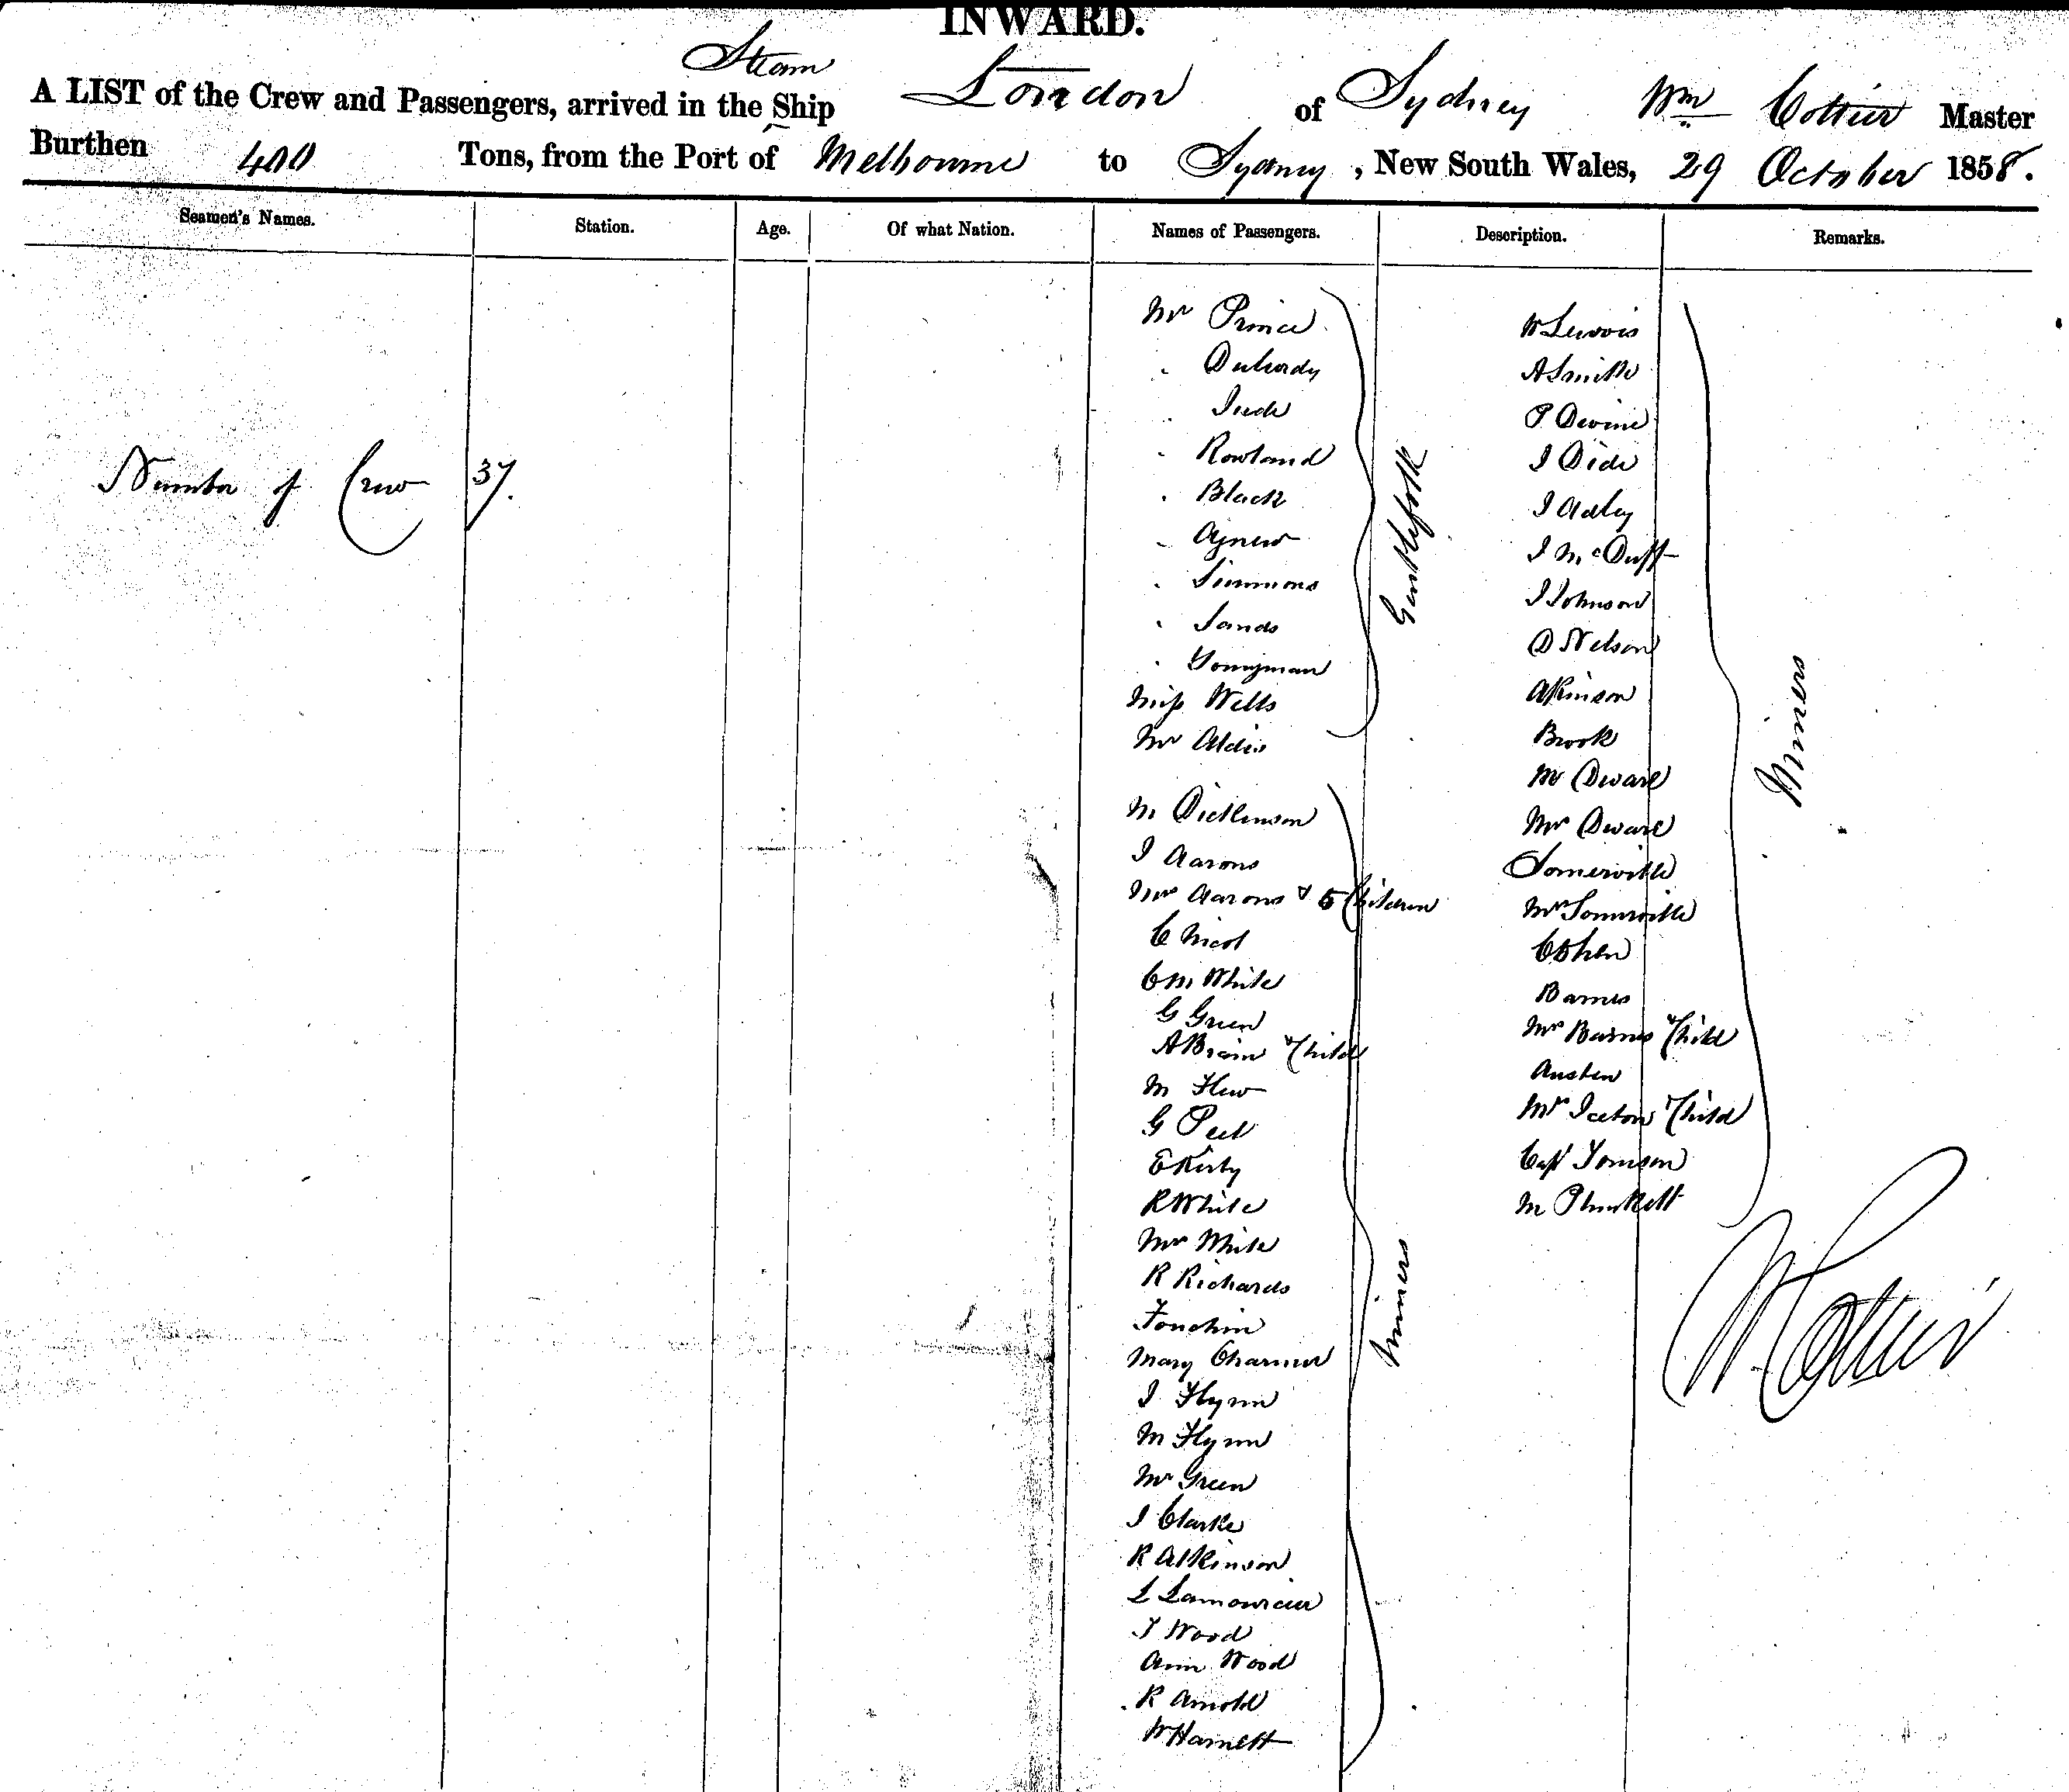 INWARD.
Steam
A LIST of the Crew and Passengers, arrived in the Ship London of Sydney Wm Cottier Master
Burthen 400 Tons, from the Port of Melbourne to Sydney, New South Wales, 29 October 1858.
Seamen's Names. Station. Age. Of what Nation. Names of Passengers. Description. Remarks.
Number of Crew 37.
Mr Prince
Jude
Rowland
Black
Agnew
Simmons
Sands
Youngman
Miss Wells
Mr Aldis
Gentlefolk
M Dickenson
J Aarons
Mrs Aarons & 5 Children
C Nicol
C M White
G Green
A Brain & Child
M Flew
G Peel
E Kirby
R White
Mrs White
R Richards
Tonchin
Mary Charmer
J Flynn
M Flynn
Mr Green
J Clarke
R Atkinson
L Lamoureux
J Wood
Ann Wood
R Arnold
W Harnett
Miners
A Smith
P Devine
J Dide
J Adley
J McDuff
J Johnson
D Nelson
Akinson
Brook
Mr Dware
Mrs Dware
Somerville
Mrs Somerville
Cohen
Barnes
Mrs Barnes & Child
Austen
Mrs Iceton & Child
Capt Tomson
M Plunkett
Miners
W Cottier